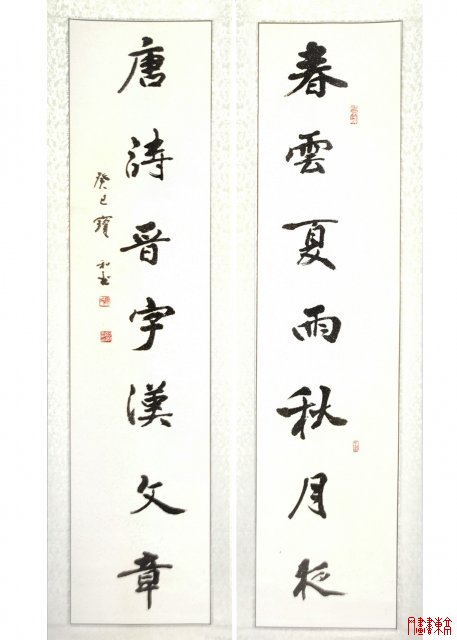 春雲夏雨秋月夜
唐詩晉字漢文章
癸巳寶和書